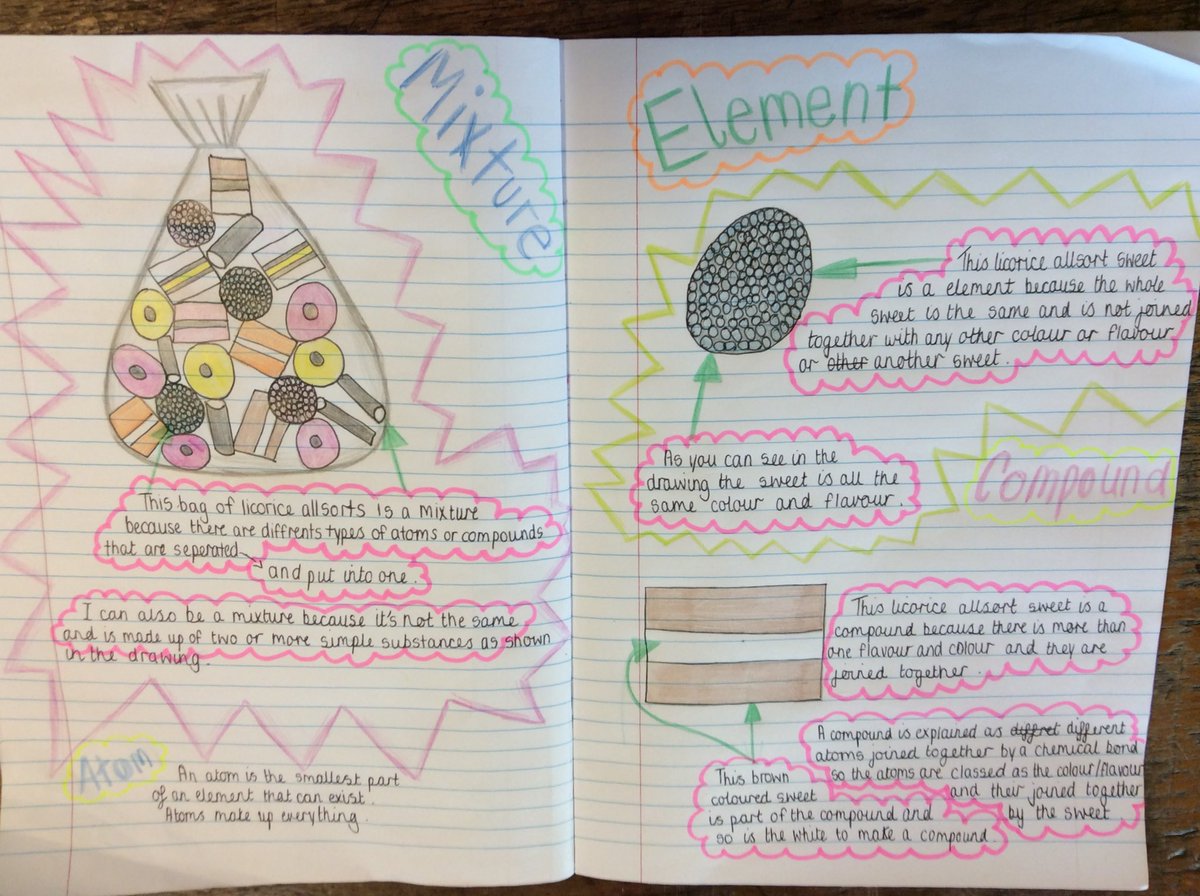 Mixture
This bag of licorice allsorts is a mixture
because there are diffrents types of atoms or compounds
that are seperated
and put into one.
I can also be a mixture because it's not the same
and is made up of two or more simple substances as shown
in the drawing.
Atom
An atom is the smallest part
of an element that can exist.
Atoms make up everything.
Element
This licorice allsort sweet
is a element because the whole
sweet is the same and is not joined
together with any other colour or flavour
or other another sweet.
As you can see in the
drawing the sweet is all the
same colour and flavour.
Compound
This licorice allsort sweet is a
compound because there is more than
one flavour and colour and they are
joined together.
A compound is explained as diffret different
atoms joined together by a chemical bond
so the atoms are classed as the colour/flavour
and their joined together
by the sweet
This brown
coloured sweet
is part of the compound and
so is the white to make a compound.